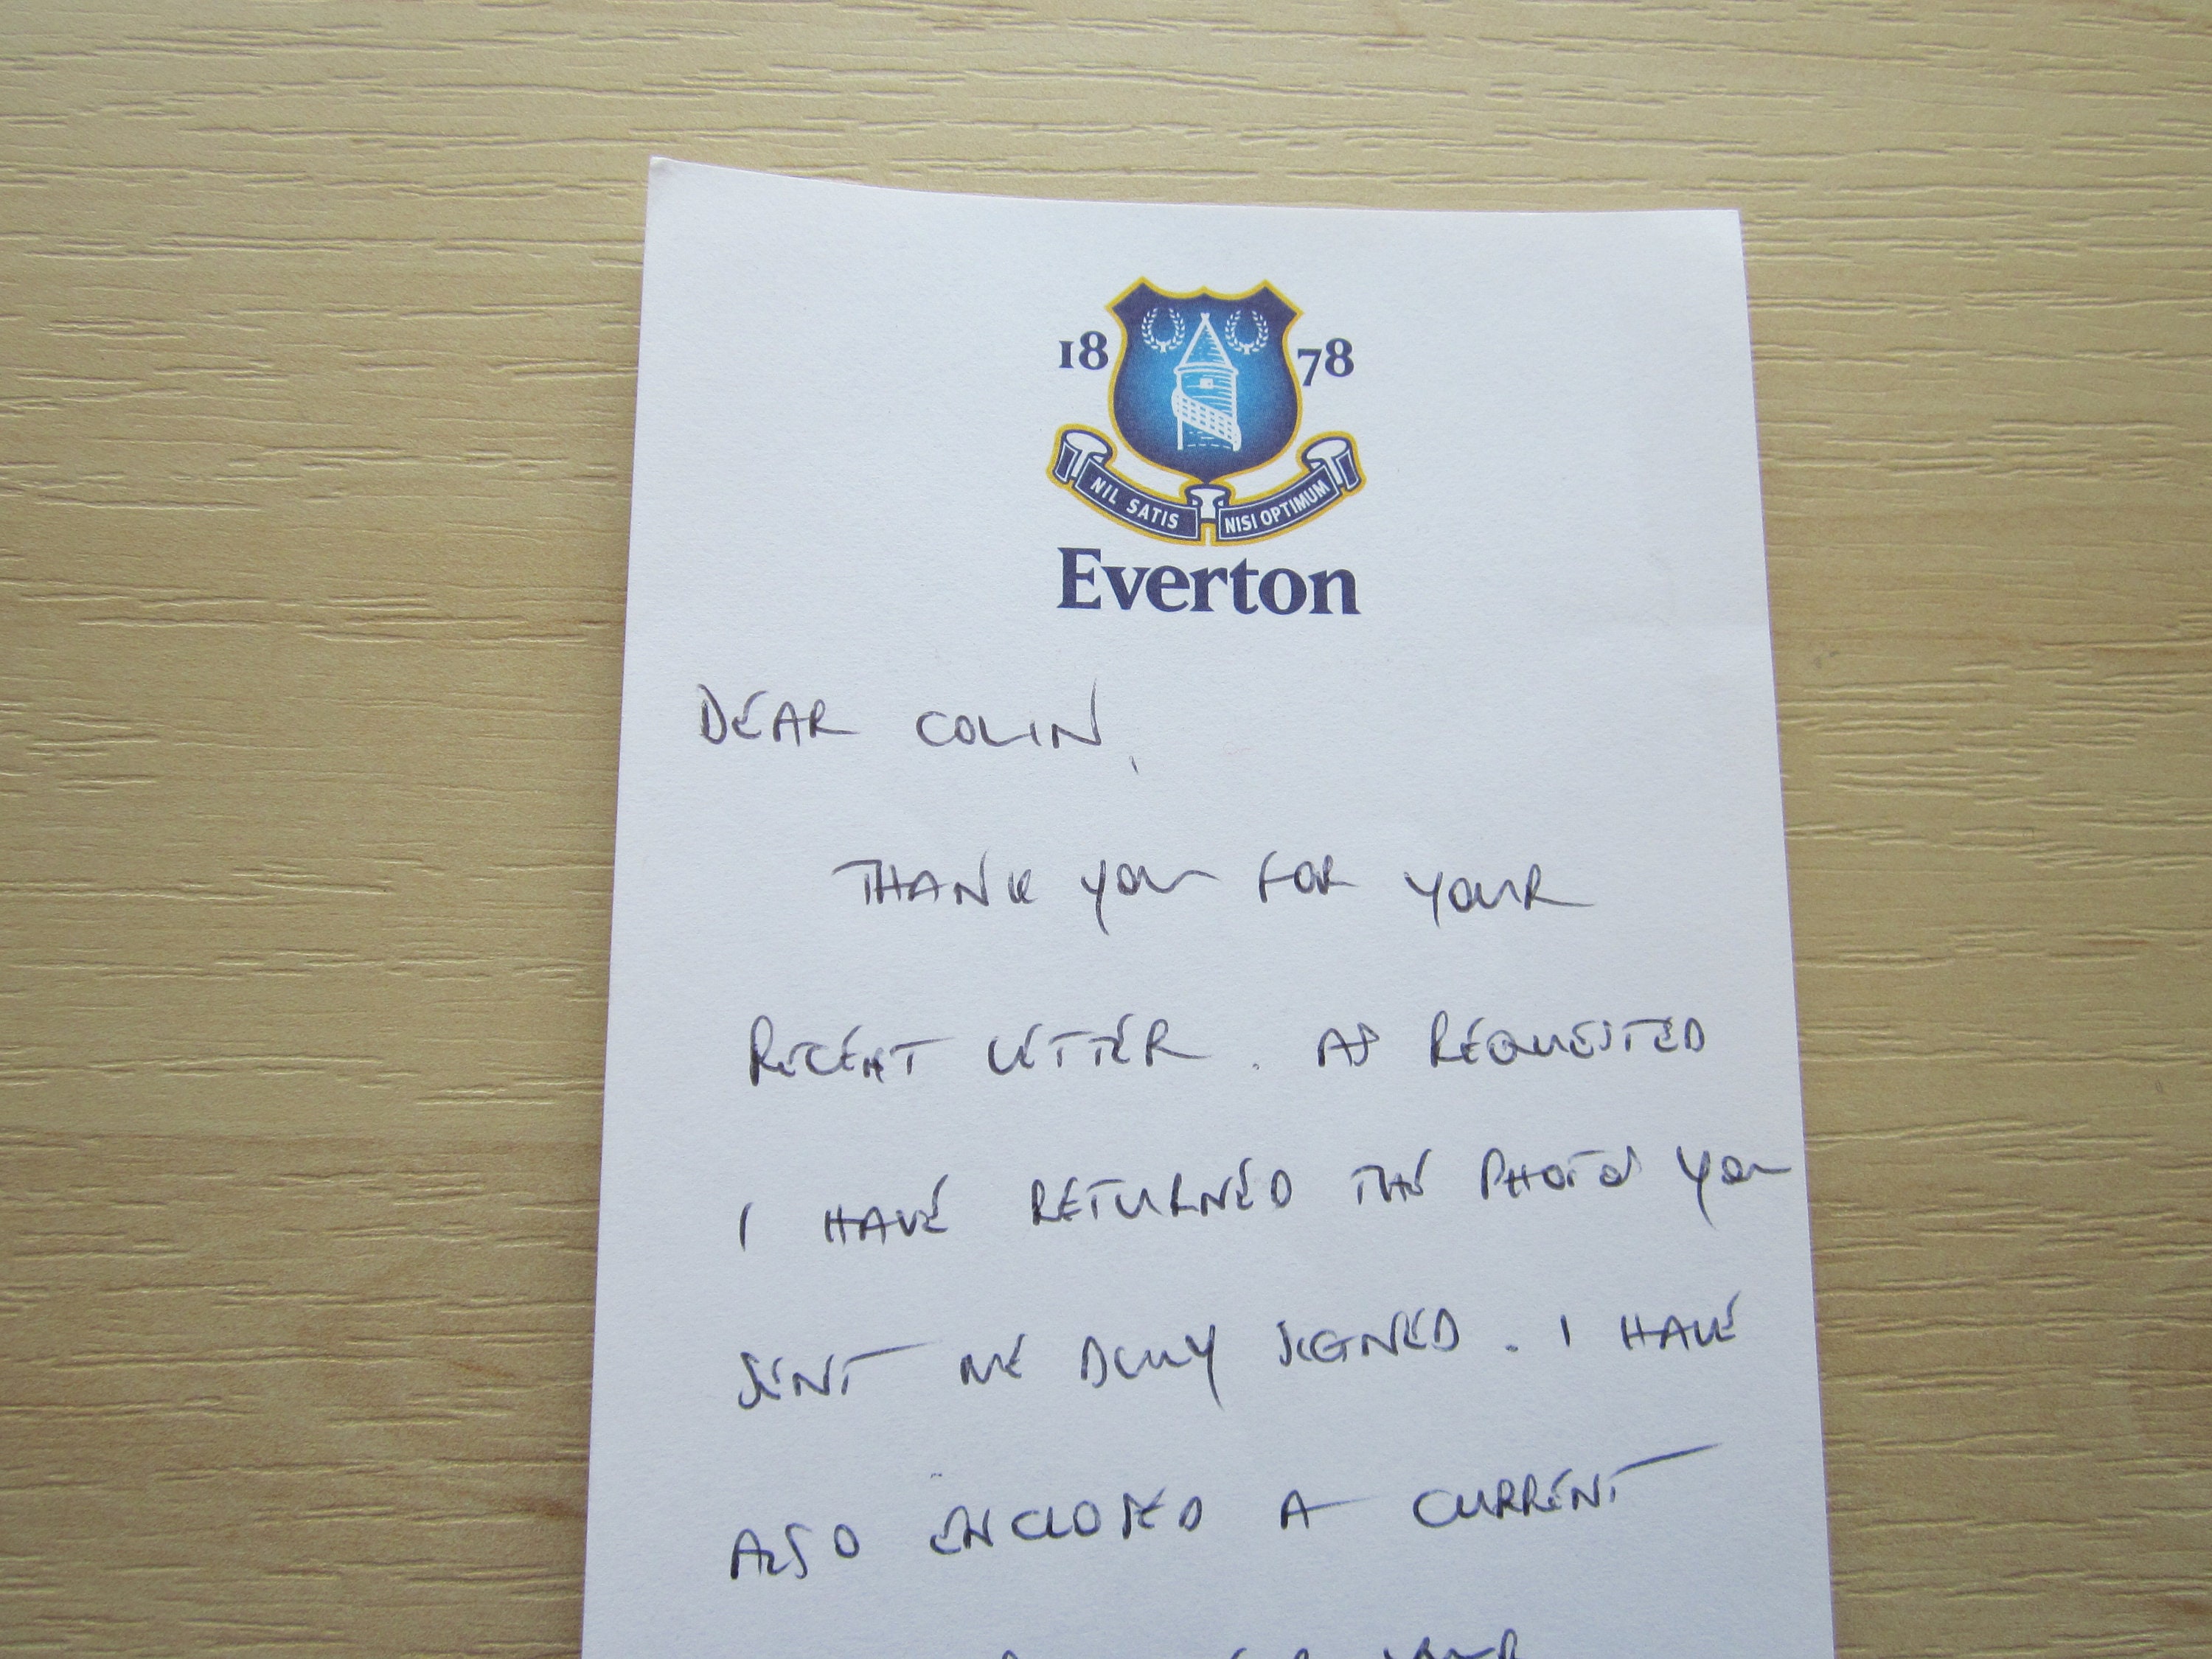 18 78
NIL SATIS NISI OPTIMUM
Everton
DEAR COLIN,
THANK YOU FOR YOUR
RECENT LETTER. AS REQUESTED
I HAVE RETURNED THE PHOTOS YOU
SENT ME DULY SIGNED. I HAVE
ALSO ENCLOSED A CURRENT
FOR YOUR